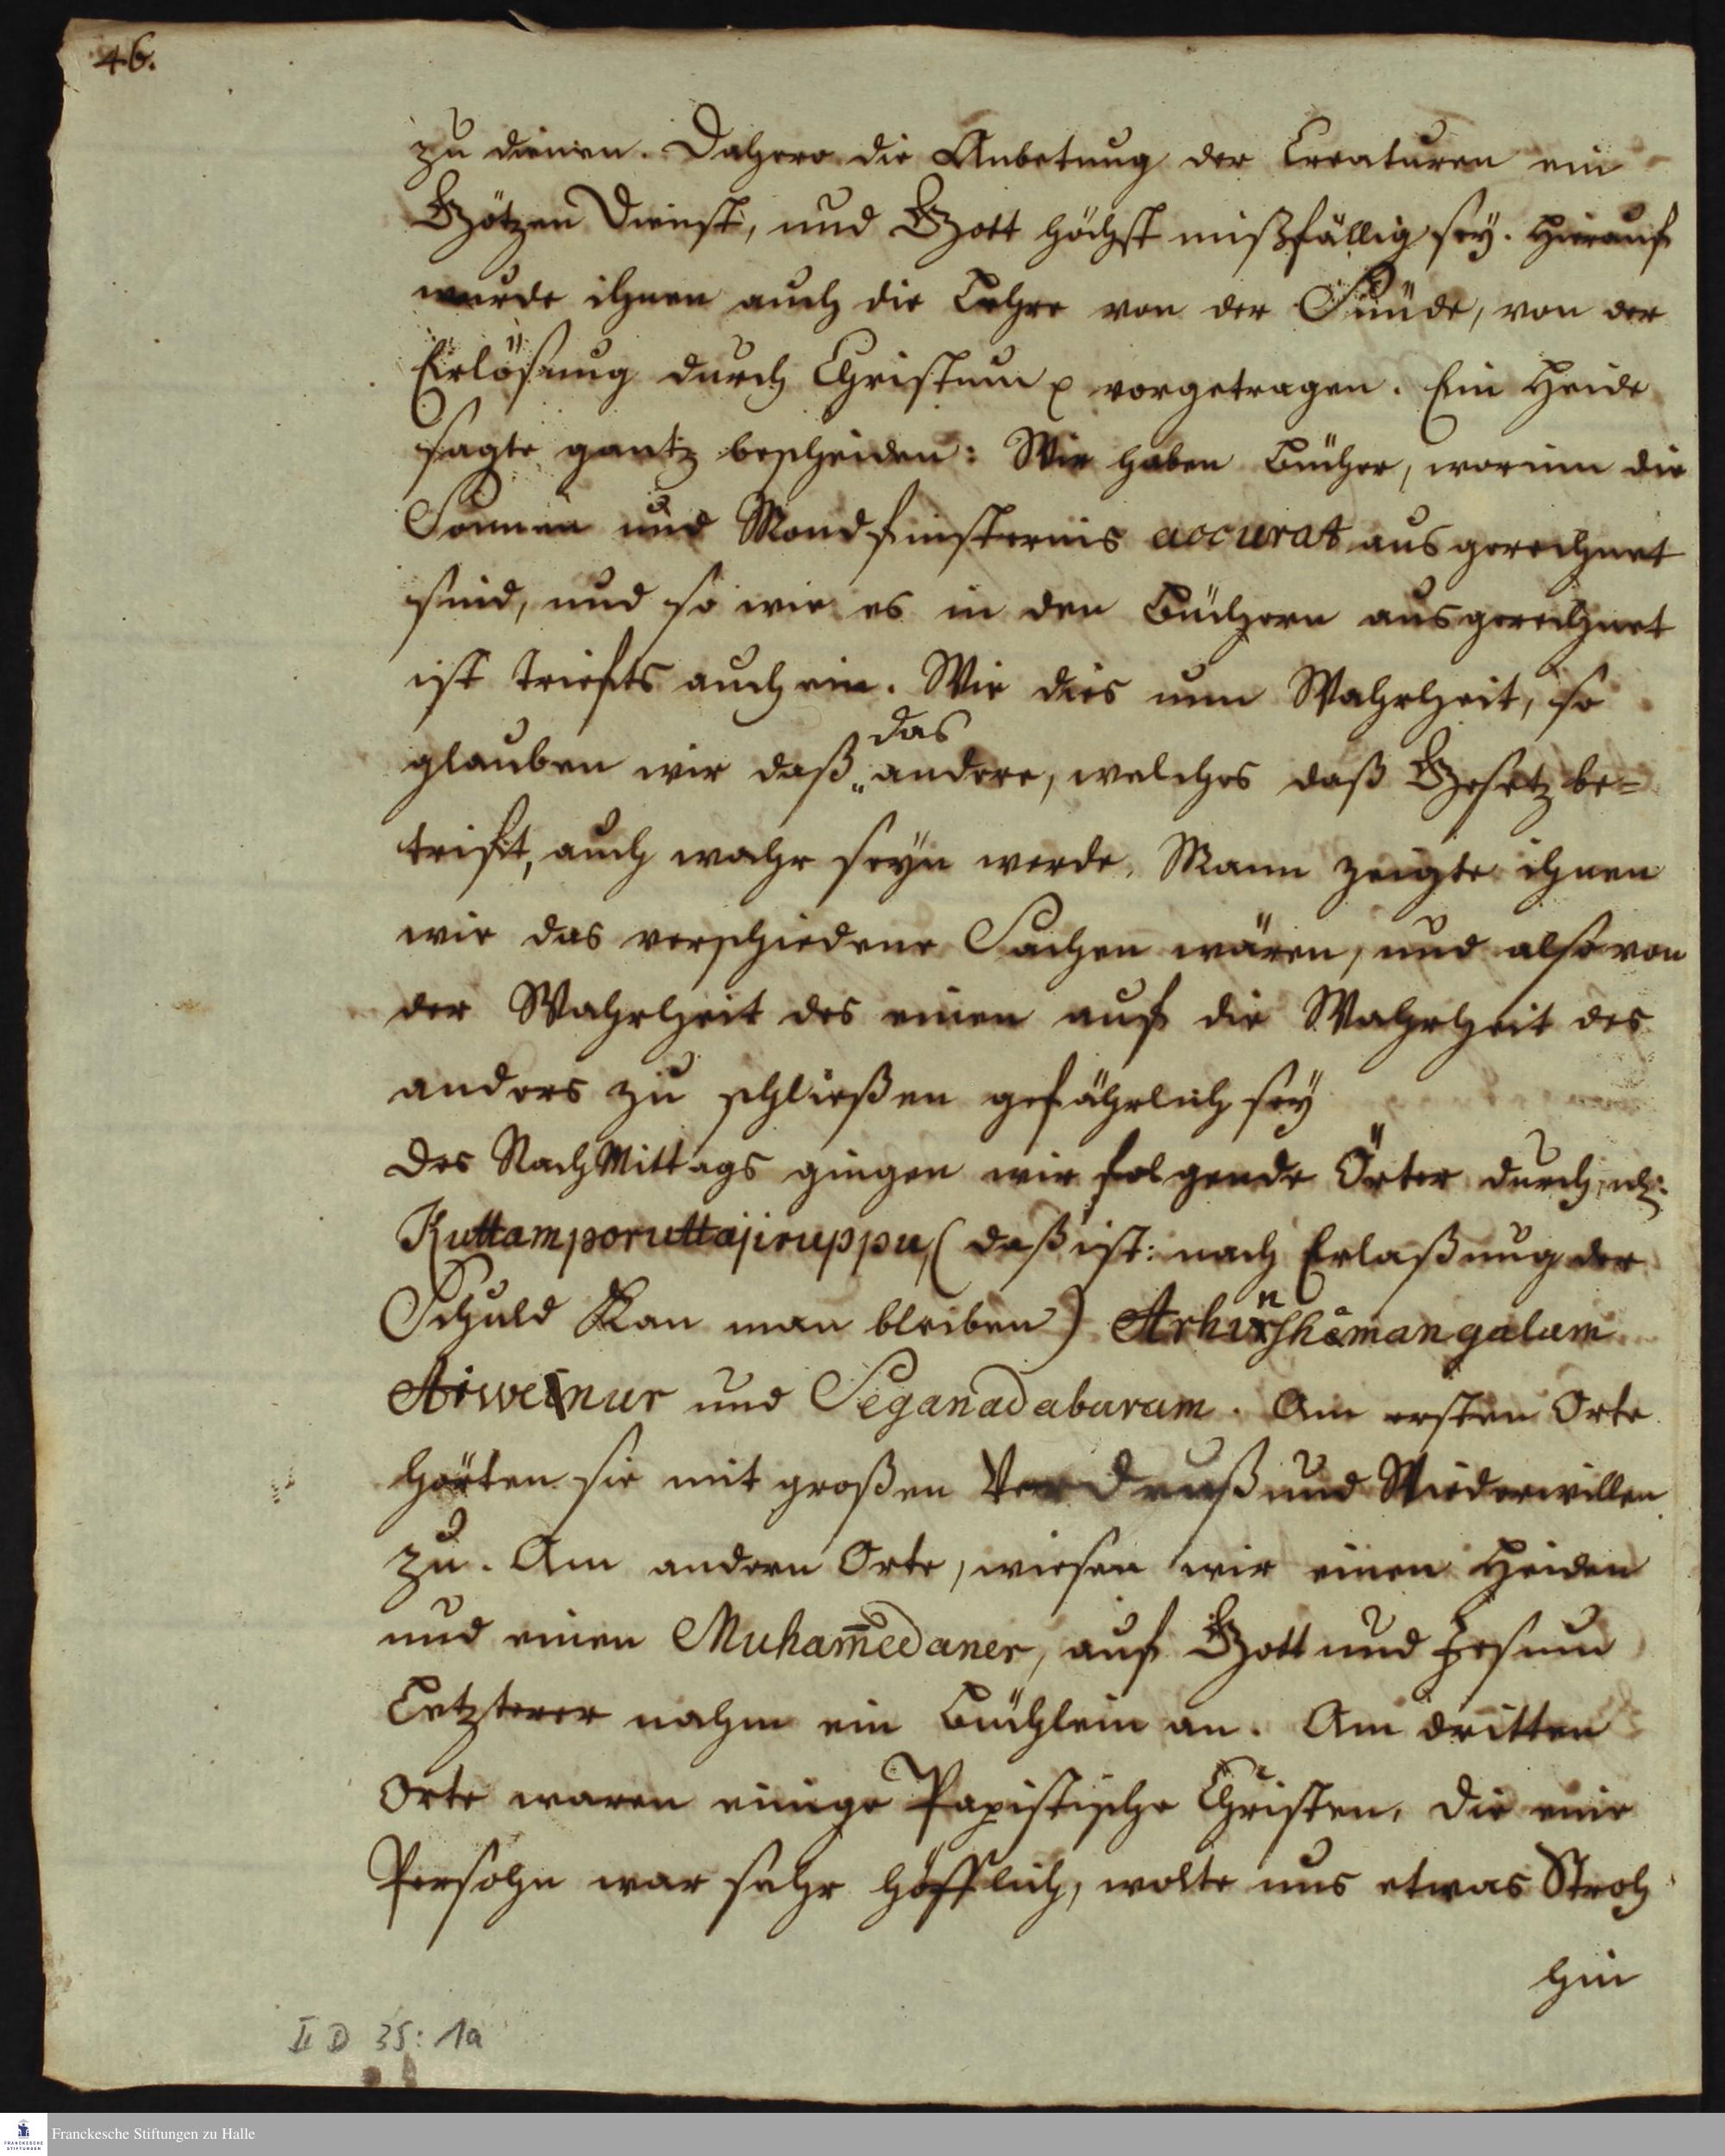 46.
zu dienen. Dahero die Anbetung der Creaturen ein
Götzen Dienst, und Gott höchst mißfällig sey. Hierauf
wurde ihnen auch die Lehre von der Sünde, von der
Erlösung durch Christum vorgetragen. Ein Heide
sagte gantz bescheiden: Wir haben Bücher, worinn die
Sonnen und Mondfinsternis accurat ausgerechnet
sind, und so wie es in den Büchern ausgerechnet
ist triefts auch ein. Wie dies nun Wahrheit, so
das
glauben wir daß andere, welches daß Gesetz be=
trift, auch wahr seyn werde. Mann zeigte ihnen
wie das verschiedene Sachen wären, und also von
der Wahrheit des einen auf die Wahrheit des
anders zu schließen gefährlich sey
Des NachMittags gingen wir folgende Örter durch, nh:
Kuttamporuttajiruppu, (daß ist: nach Erlaßung der
Schuld Kan man bleiben) Arhinshámangalam
Aiweinur und Seganadaburam. Am ersten Orte
hörten sie mit großen Verdruß und Wiederwillen
zu. Am andern Orte, wiesen wir einen Heiden
und einen Muham̄edaner, auf Gott und Jesum
Letzterer nahm ein Büchlein an. Am dritten
Orte waren einige Papistische Christen, die eine
Persohn war sehr höfflich, wolte uns etwas Stroh
hin
II D 35: 1a
FRANCKESCHE STIFTUNGEN
Franckesche Stiftungen zu Halle